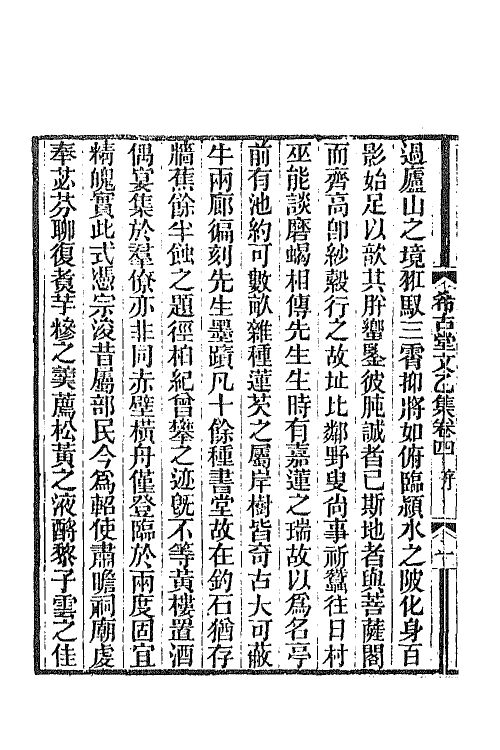 希古堂文乙集卷四 序
過廬山之境殂馭三霄抑將如俯臨潁水之陂化身百
影始足以歆其肸蠁鑒彼肫誠者已斯地者與菩薩閣
而齊高卽紗縠行之故址比鄰野叟尙事祈蠶往日村
巫能談磨蝎相傳先生生時有嘉蓮之瑞故以爲名亭
前有池約可數畝雜種蓮芡之屬岸樹皆奇古大可蔽
牛兩廊徧刻先生墨蹟凡十餘種書堂故在釣石猶存
牆蕉餘半蝕之題徑柏紀曾攀之迹旣不等黃樓置酒
偶宴集於羣僚亦非同赤壁橫舟僅登臨於兩度固宜
精魄實此式憑宗浚昔屬部民今爲軺使肅瞻祠廟虔
奉苾芬聊復煑芋糝之羹薦松黃之液酹黎子雲之佳